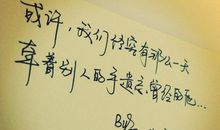 或许，我们终究有那么一天
牵着别人的手遗忘曾经的他...
By: